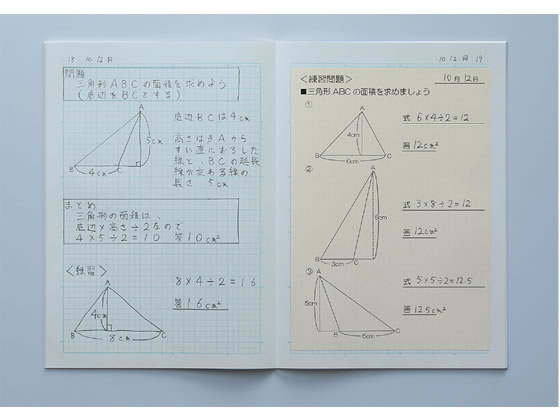 18 10.12.月
問題
三角形ABCの面積を求めよう
(底辺をBCとする)
A
5cm
B
C
4cm
底辺BCは4cm
高さは点Aから
すい直におろした
線と、BCの延長
線が交わる線の
長さ 5cm
まとめ
三角形の面積は、
底辺×高さ÷2なので
4×5÷2=10 答10cm²
<練習>
A
4cm
B
C
8cm
8×4÷2=16
答16cm²
10.12.月 19
<練習問題>
10月12日
■三角形ABCの面積を求めましょう
①
A
4cm
B
C
6cm
式 6×4÷2=12
答 12cm²
②
A
8cm
B
C
3cm
式 3×8÷2=12
答 12cm²
③
A
5cm
B
C
5cm
式 5×5÷2=12.5
答 12.5cm²